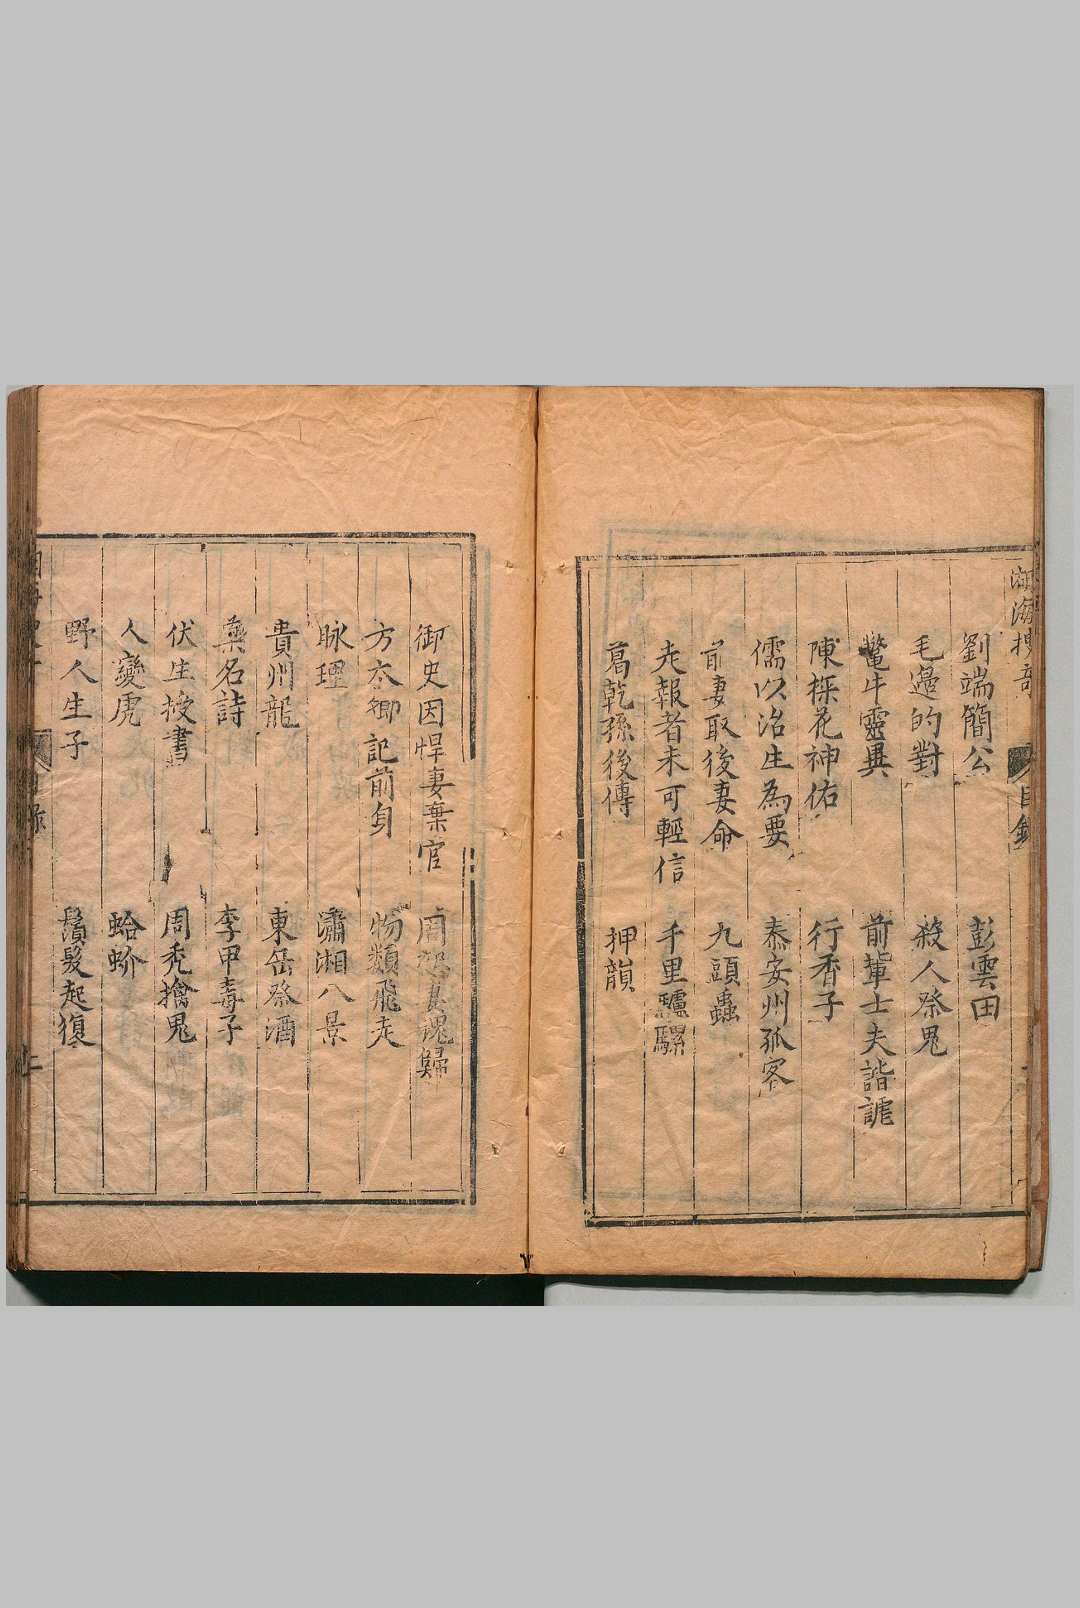 湖海搜奇 目錄
劉端簡公 彭雲田
毛邉的對 殺人祭鬼
鼈牛靈異 前輩士夫諧謔
陳櫟花神佑 行香子
儒以治生為要 泰安州孤客
前妻取後妻命 九頭蟲
走報者未可輕信 千里驢騾
葛乾孫後傳 押韻
御史因悍妻棄官 周恕妻魂歸
方太卿記前身 物類飛走
脉理 瀟湘八景
貴州龍 東岳祭酒
藥名詩 李甲毒子
伏生授書 周禿擒鬼
人變虎 蛤蚧
野人生子 鬚髮起復